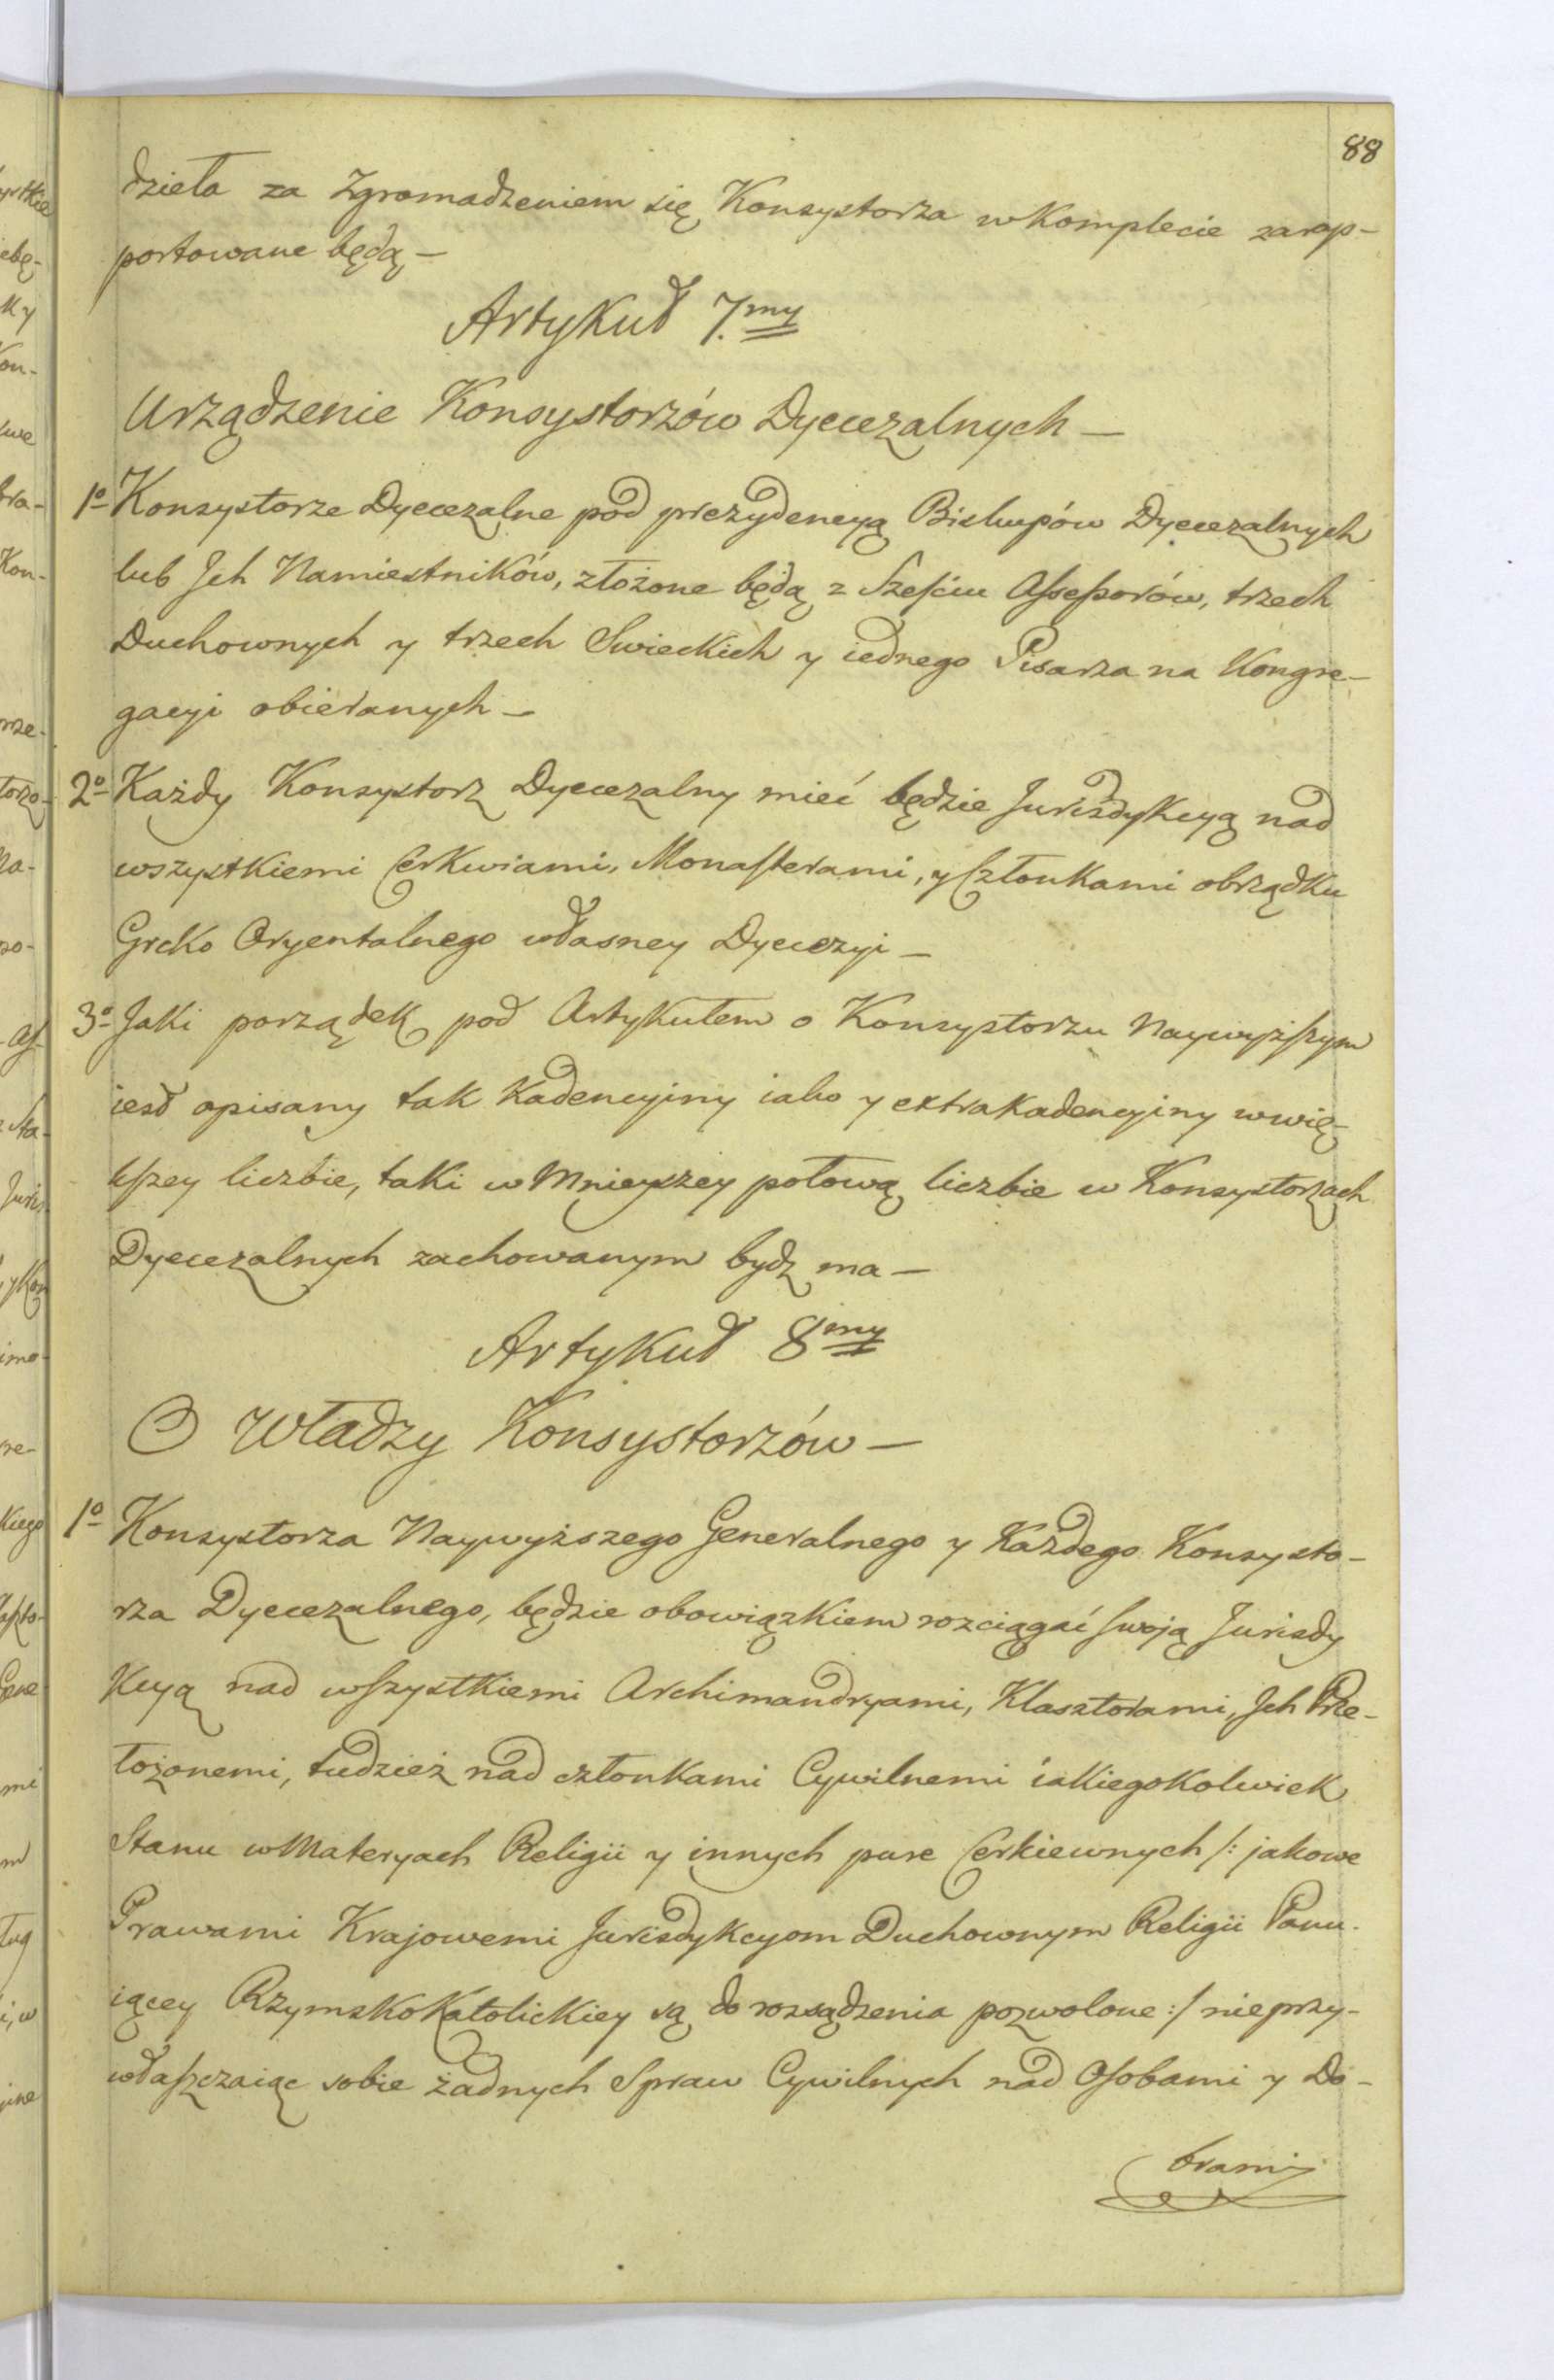 88
dzieła za Zgromadzeniem się Konsystorza w Komplecie zarap-
portowane będą —
Artykuł 7.my
Urządzenie Konsystorzów Dyecezalnych —
1o Konsystorze Dyecezalne pod prezydencyą Biskupów Dyecezalnych
lub Jch Namiestników, złożone będą z Sześciu Assessorów, trzech
Duchownych y trzech Swieckich y iednego Pisarza na Kongre-
gacyi obieranych —
2o Każdy Konsystorz Dyecezalny mieć będzie Jurisdykcyą nad
wszystkiemi Cerkwiami, Monasterami, y Członkami obrządku
Grcko Oryentalnego własney Dyecezyi —
3o Jaki porządek pod Artykułem o Konsystorzu Naywyższym
iest opisany tak Kadencyiny iako y extrakadencyiny w wię-
kszey liczbie, taki w Mnieyszey połową liczbie w Konsystorzach
Dyecezalnych zachowanym bydz ma —
Artykuł 8my
O Władzy Konsystorzów —
1o Konsystorza Naywyższego Generalnego y Każdego Konsysto-
rza Dyecezalnego, będzie obowiązkiem rozciągać swoją Jurisdy
kcyą nad wszystkiemi Archimandryami, Klasztorami, Jch Prze-
łożonemi, tudzież nad członkami Cywilnemi iakiegokolwiek
Stanu w Materyach Religii y innych pure Cerkiewnych /: jakowe
Prawami Krajowemi Jurisdykcyom Duchownym Religii Panu-
iącey Rzymsko Katolickiey są do rozsądzenia pozwolone :/ nieprzy-
właszczaiąc sobie żadnych Spraw Cywilnych nad Osobami y Do-
brami